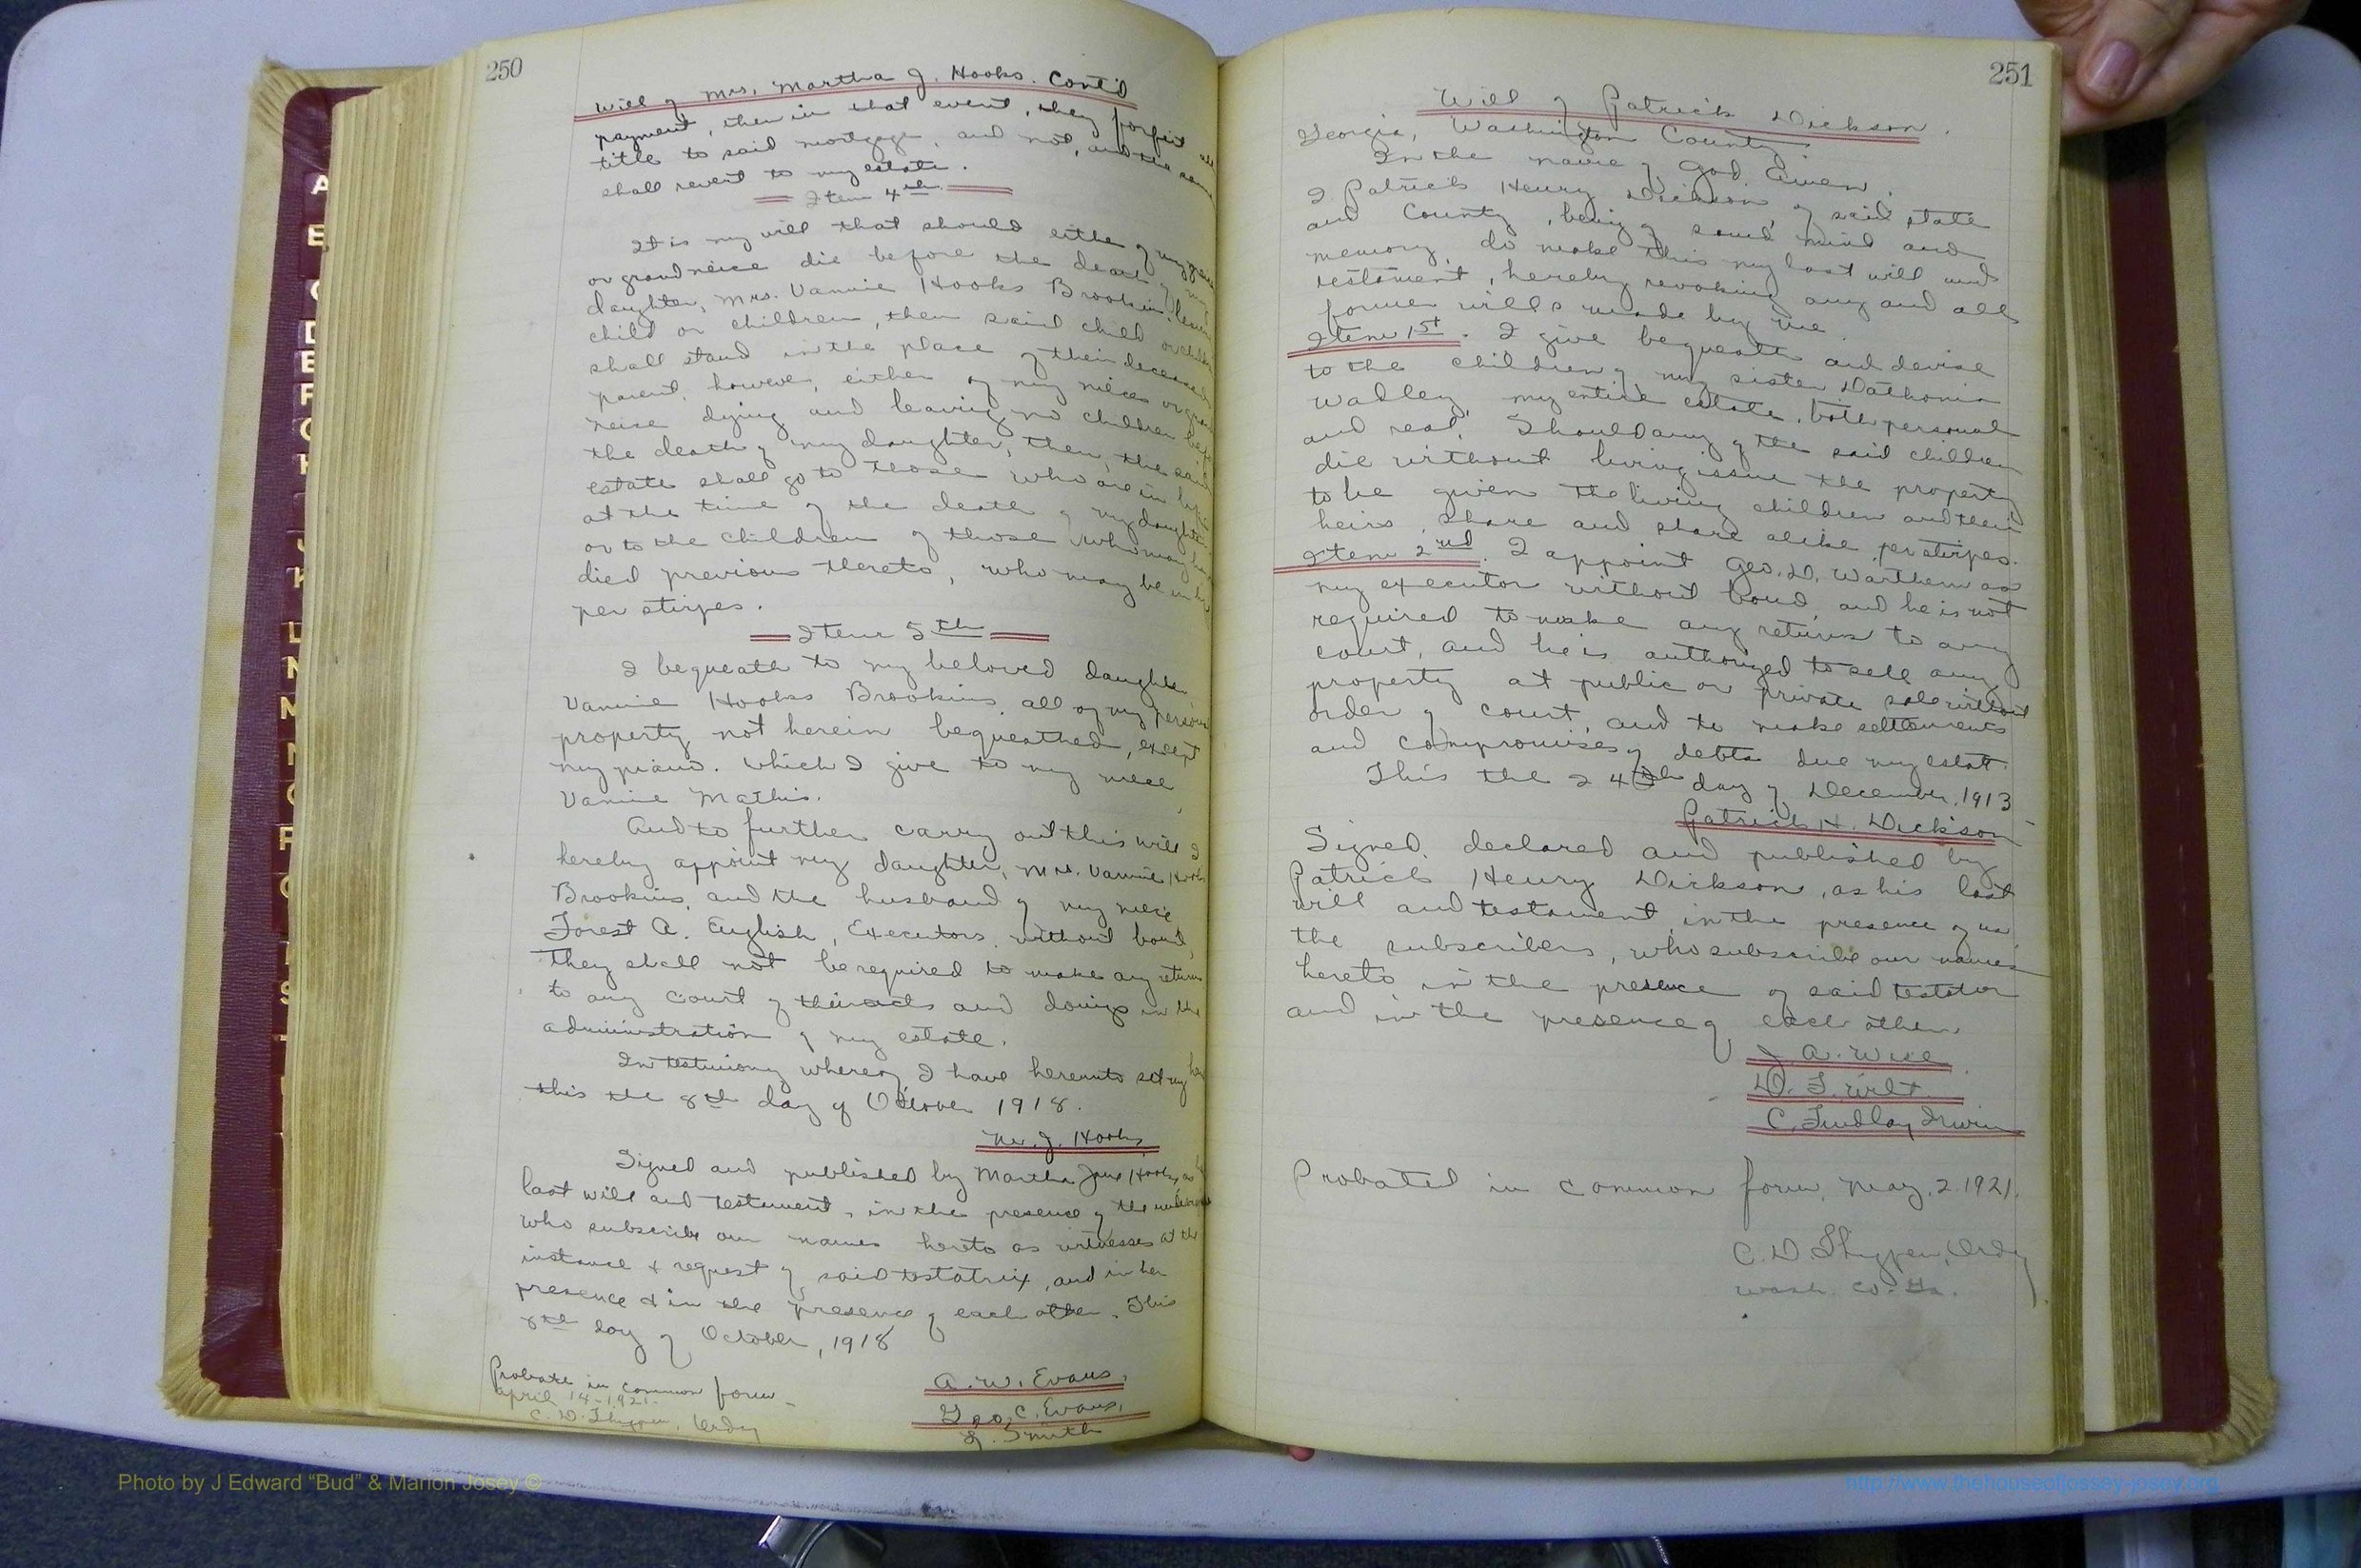 250
Will of Mrs. Martha J. Hooks. Cont'd
payment, then in that event, they forfeit all
title to said mortgage, and not, and the same
shall revert to my estate.
Item 4th
It is my will that should either of my
or grandneice die before the death of my
daughter, Mrs. Vannie Hooks Brookins,
child or children, then said child or
shall stand in the place of their deceased
parent, however, either of my neices or
neice dying and leaving no children
the death of my daughter, then, the said
estate shall go to those who are in
at the time of the death of my daughter
or to the children of those who may
died previous thereto, who may be in
per stirpes.
Item 5th
I bequeath to my beloved daughter
Vannie Hooks Brookins, all of my
property not herein bequeathed, except
my piano. Which I give to my neice
Vannie Mathis.
And to further carry out this will I
hereby appoint my daughter, Mrs. Vannie Hooks
Brookins, and the husband of my neice
Forest A. English, Executors, without bond,
They shall not be required to make any returns
to any Court of their acts and doings in the
administration of my estate.
In testimony whereof, I have hereunto set my
this the 8th day of October 1918.
M. J. Hooks
Signed and published by Martha Jane Hooks, as
last will and testament, in the presence of the
who subscribe our names hereto as witnesses at the
instance & request of said testatrix, and in her
presence & in the presence of each other. This
8th day of October, 1918
A. W. Evans,
Geo. C. Evans,
Smith
Probate in common form
April 14-1921
C. D. Thigpen, Ordy
251
Will of Patrick Dickson.
Georgia, Washington County.
In the name of God. Amen.
I Patrick Henry Dickson, of said state
and County, being of sound mind and
memory, do make this my last will and
testament, hereby revoking any and all
former wills made by me.
Item 1st. I give bequeath and devise
to the children of my sister Dathonia
Wadley, my entire estate, both personal
and real. Should any of the said children
die without living issue the property
to be given the living children and their
heirs, share and share alike, per stirpes.
Item 2nd. I appoint Geo. D. Warthen as
my executor without bond, and he is not
required to make any returns to any
court, and he is authorized to sell any
property at public or private sale without
order of court, and to make settlements
and compromises of debts due my estate.
This the 24th day of December, 1913
Patrick H. Dickson
Signed, declared and published by
Patrick Henry Dickson, as his last
will and testament, in the presence of us,
the subscribers, who subscribe our names
hereto in the presence of said testator
and in the presence of each other.
J. A. Wise
D. T. Wilt
C. Findlay Irwin
Probated in common form, May, 2. 1921.
C. D. Thigpen, Ordy
Wash. Co. Ga.
Photo by J Edward "Bud" & Marion Josey ©
http://www.thehouseofjossey-josey.org